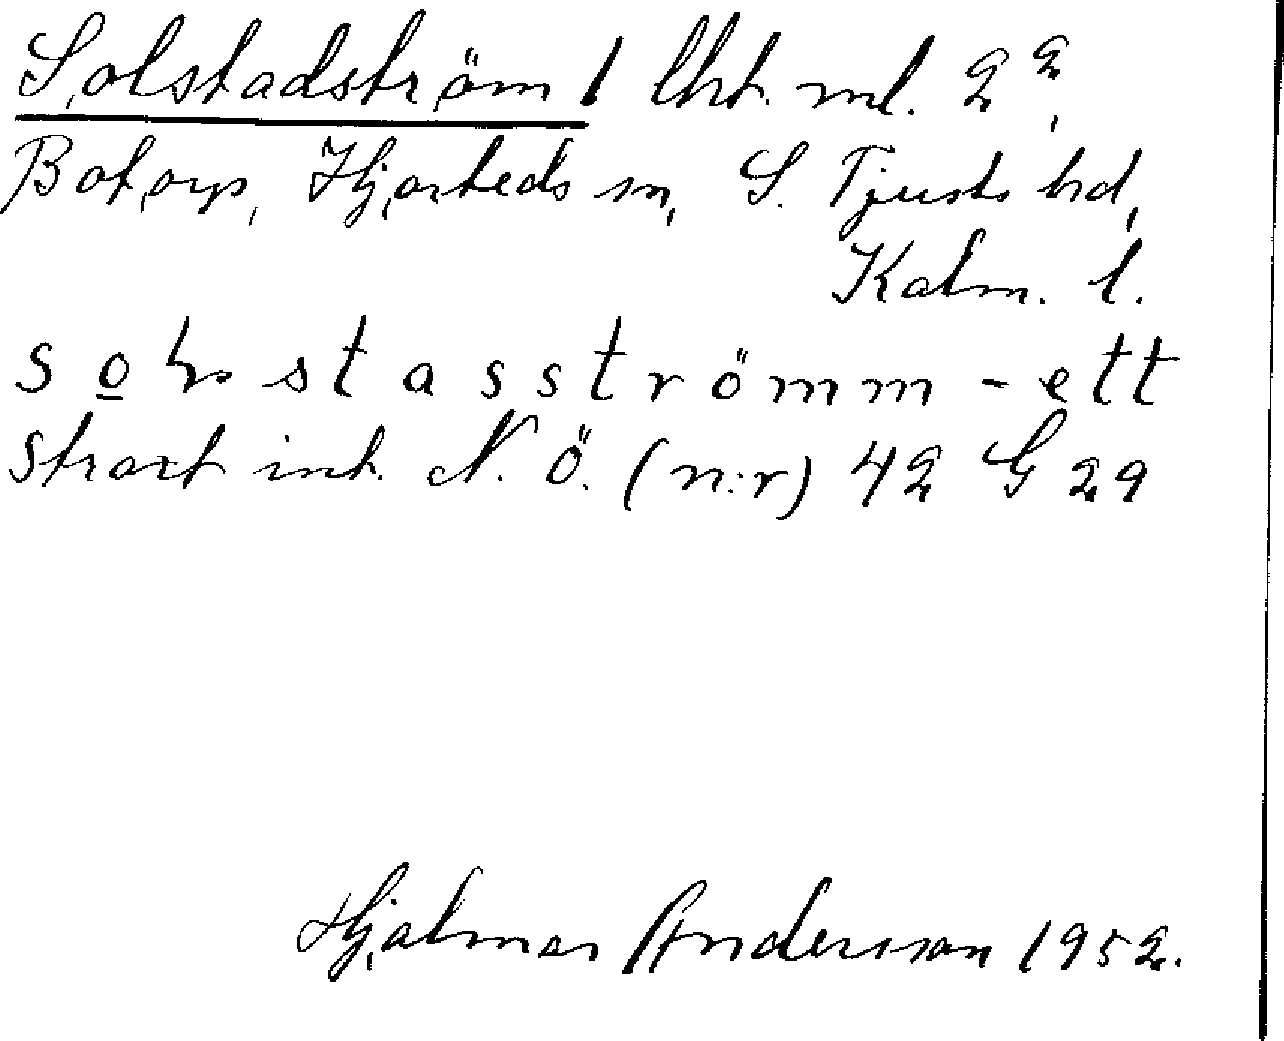 Solstadström 1 lht. ml. 2²,
Botorp, Hjorteds sn, S. Tjusts hd,
Kalm. l.
strax int. N. Ö. (n:r) 42 G 29
Hjalmar Andersson 1952.